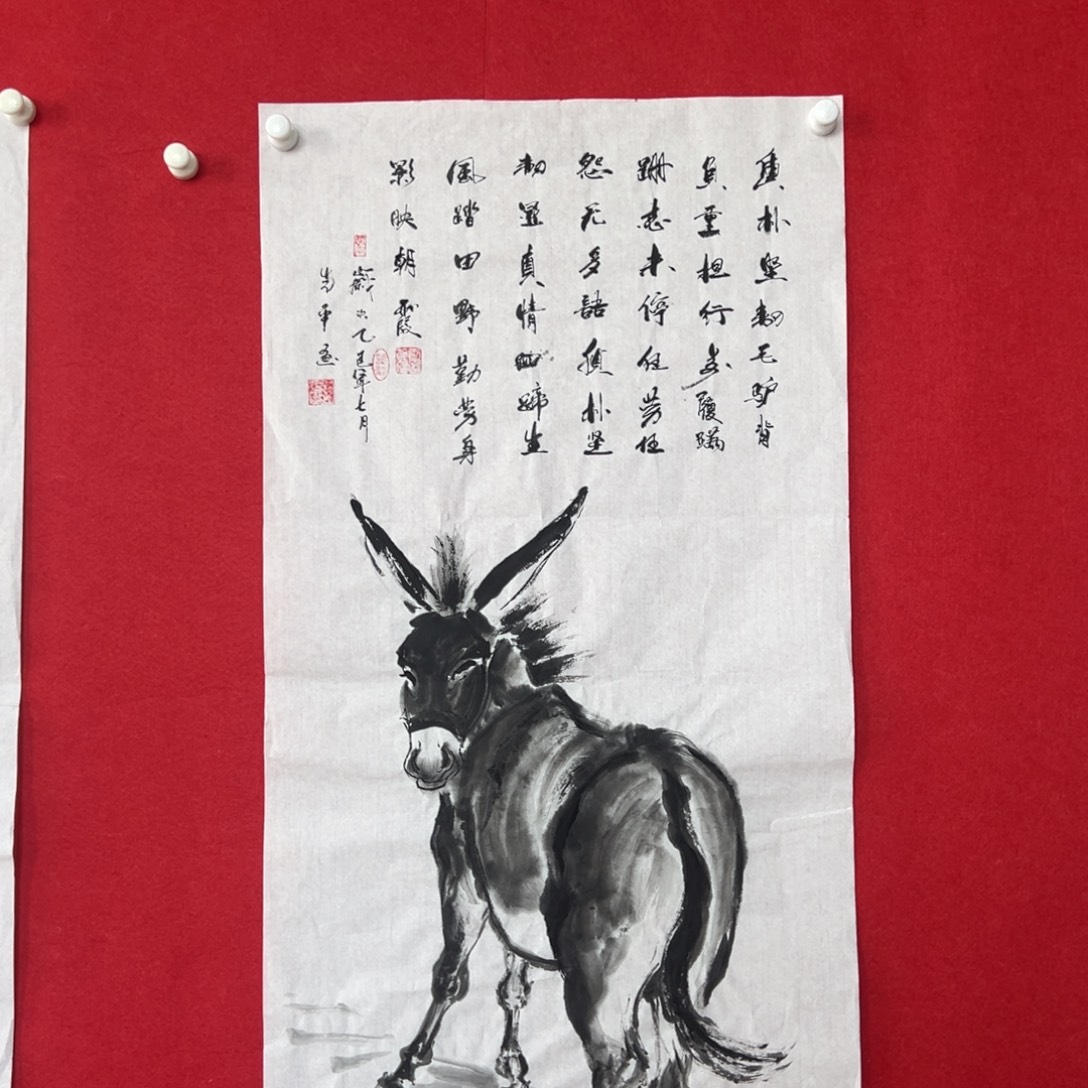 质朴坚韧毛驴背
负重担行步履蹒
跚志未停任劳任
怨无多語质朴坚
韧显真情四蹄生
风踏田野勤劳身
影映朝霞
岁次乙巳年七月
平画